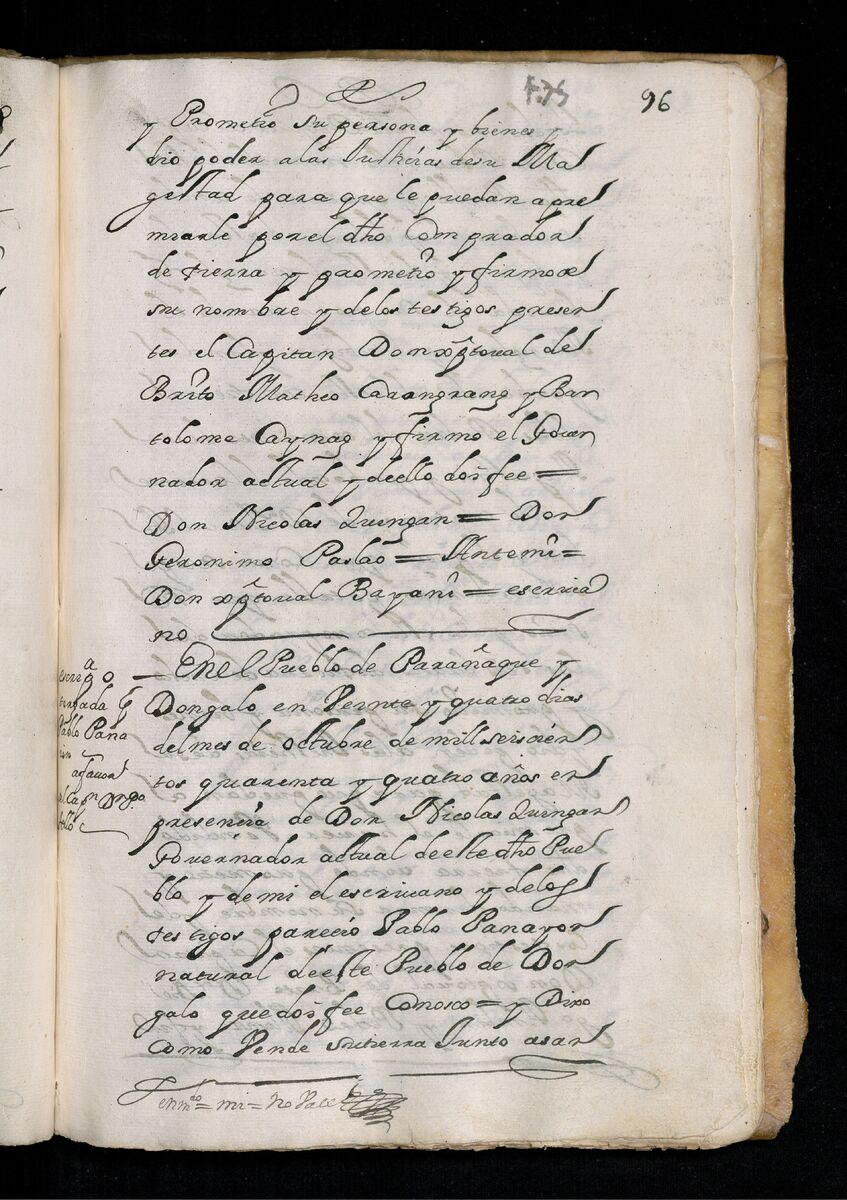 96
y Prometio su persona y bienes y
dio poder a las Justicias de su Ma
gestad para que le puedan apre
miarle por el dho Comprador
de tierra y prometio y firmo de
su nombre y delos testigos presen
tes el Capitan Don xptoual de
Brito Matheo Carangrang y Bar
tolome Caynag y firmo el Gouer
nador actual y deello doi fee =
Don Nicolas Quingan = Don
Geronimo Paslao = Antemi =
Don xptoual Bayani = escriua
no
En el Pueblo de Parañaque y
Dongalo en Veinte y quatro dias
del mes de octubre de mill seiscien
tos quarenta y quatro años en
presencia de Don Nicolas Quingan
Gouernador actual deeste dho Pue
blo y de mi el escriuano y delos
testigos parecio Pablo Panayon
natural deeste Pueblo de Don
galo que doi fee Conosco = y Dixo
Como Vende su tierra Junto a san
Pablo Pana
afauor
enmdo = mi = no Vale